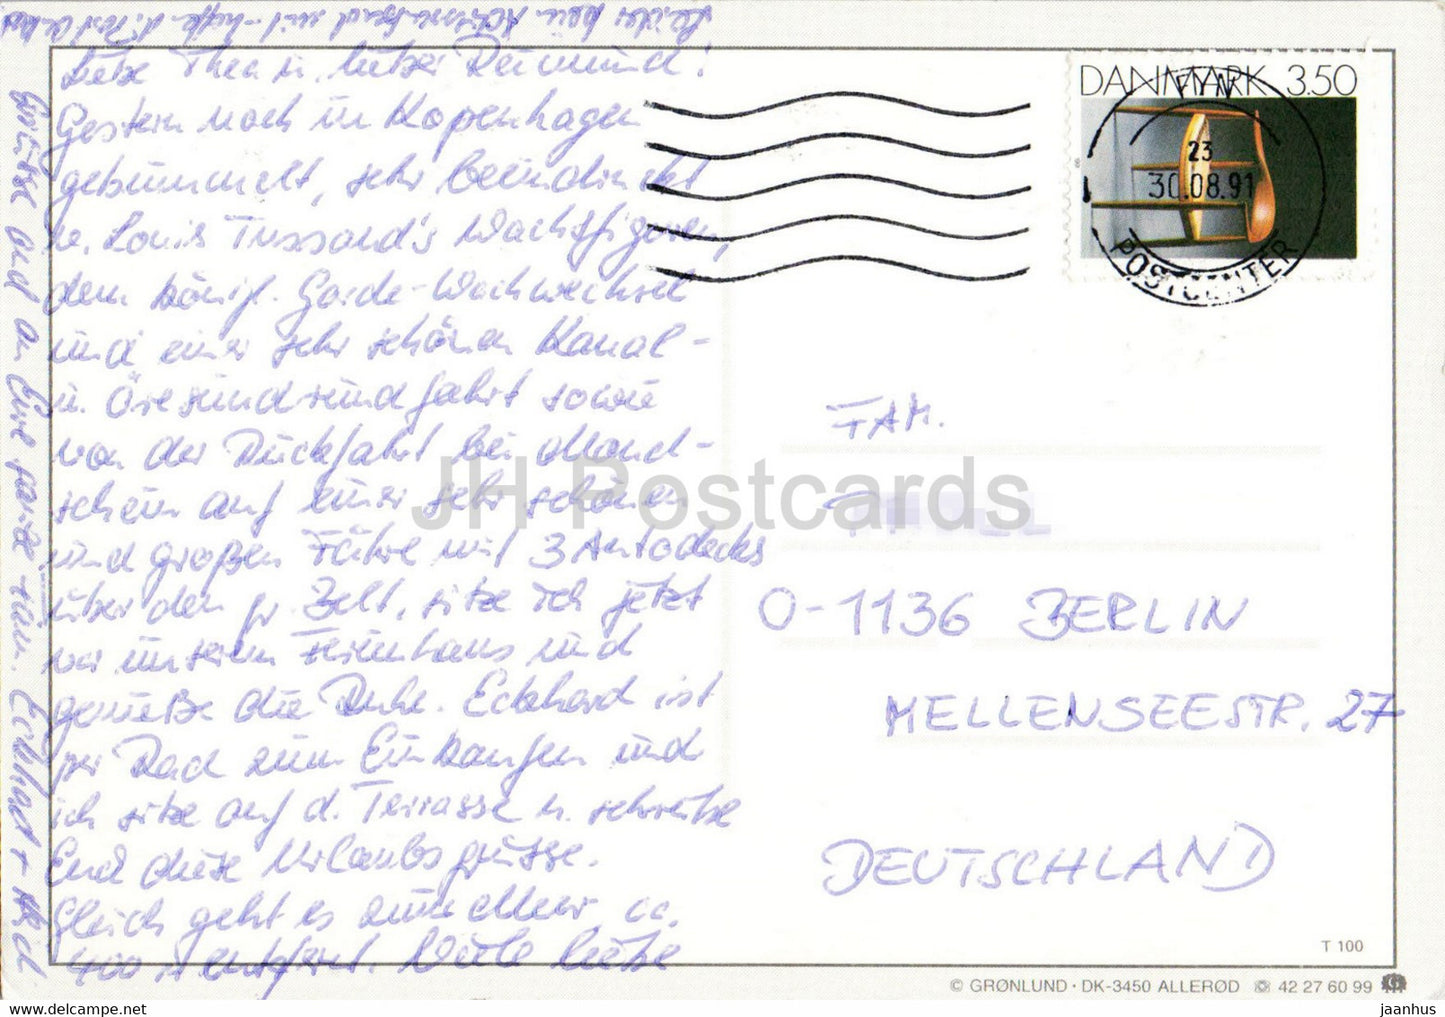 Leider kein
Liebe Thea u. lieber Reimund!
Gestern noch in Kopenhagen
gebummelt, sehr beeindruckt
v. Louis Tussaud's Wachsfiguren,
dem königl. Garde-Wachwechsel
und einer sehr schönen Kanal-
u. Öresundrundfahrt sowie
von der Rückfahrt bei Mond-
schein auf einer sehr schönen
und großen Fähre mit 3 Autodecks
über den gr. Belt, sitze ich jetzt
vor unserem Ferienhaus und
genieße die Ruhe. Eckhard ist
per Rad zum Einkaufen und
ich sitze auf d. Terrasse u. schreibe
Euch diese Urlaubsgrüsse.
Gleich geht es zum Meer, ca.
400 m entfernt. Viele liebe
Grüße auch an Eure ganze Fam. Eckhard +
DANMARK 3.50
FYN
23
30.08.91
POSTCENTER
FAM.
O-1136 BERLIN
MELLENSEESTR. 27
DEUTSCHLAND
JH Postcards
T 100
© GRØNLUND · DK-3450 ALLERØD ☏ 42 27 60 99
https://jhpostcard.ecrater.com
jaanhus